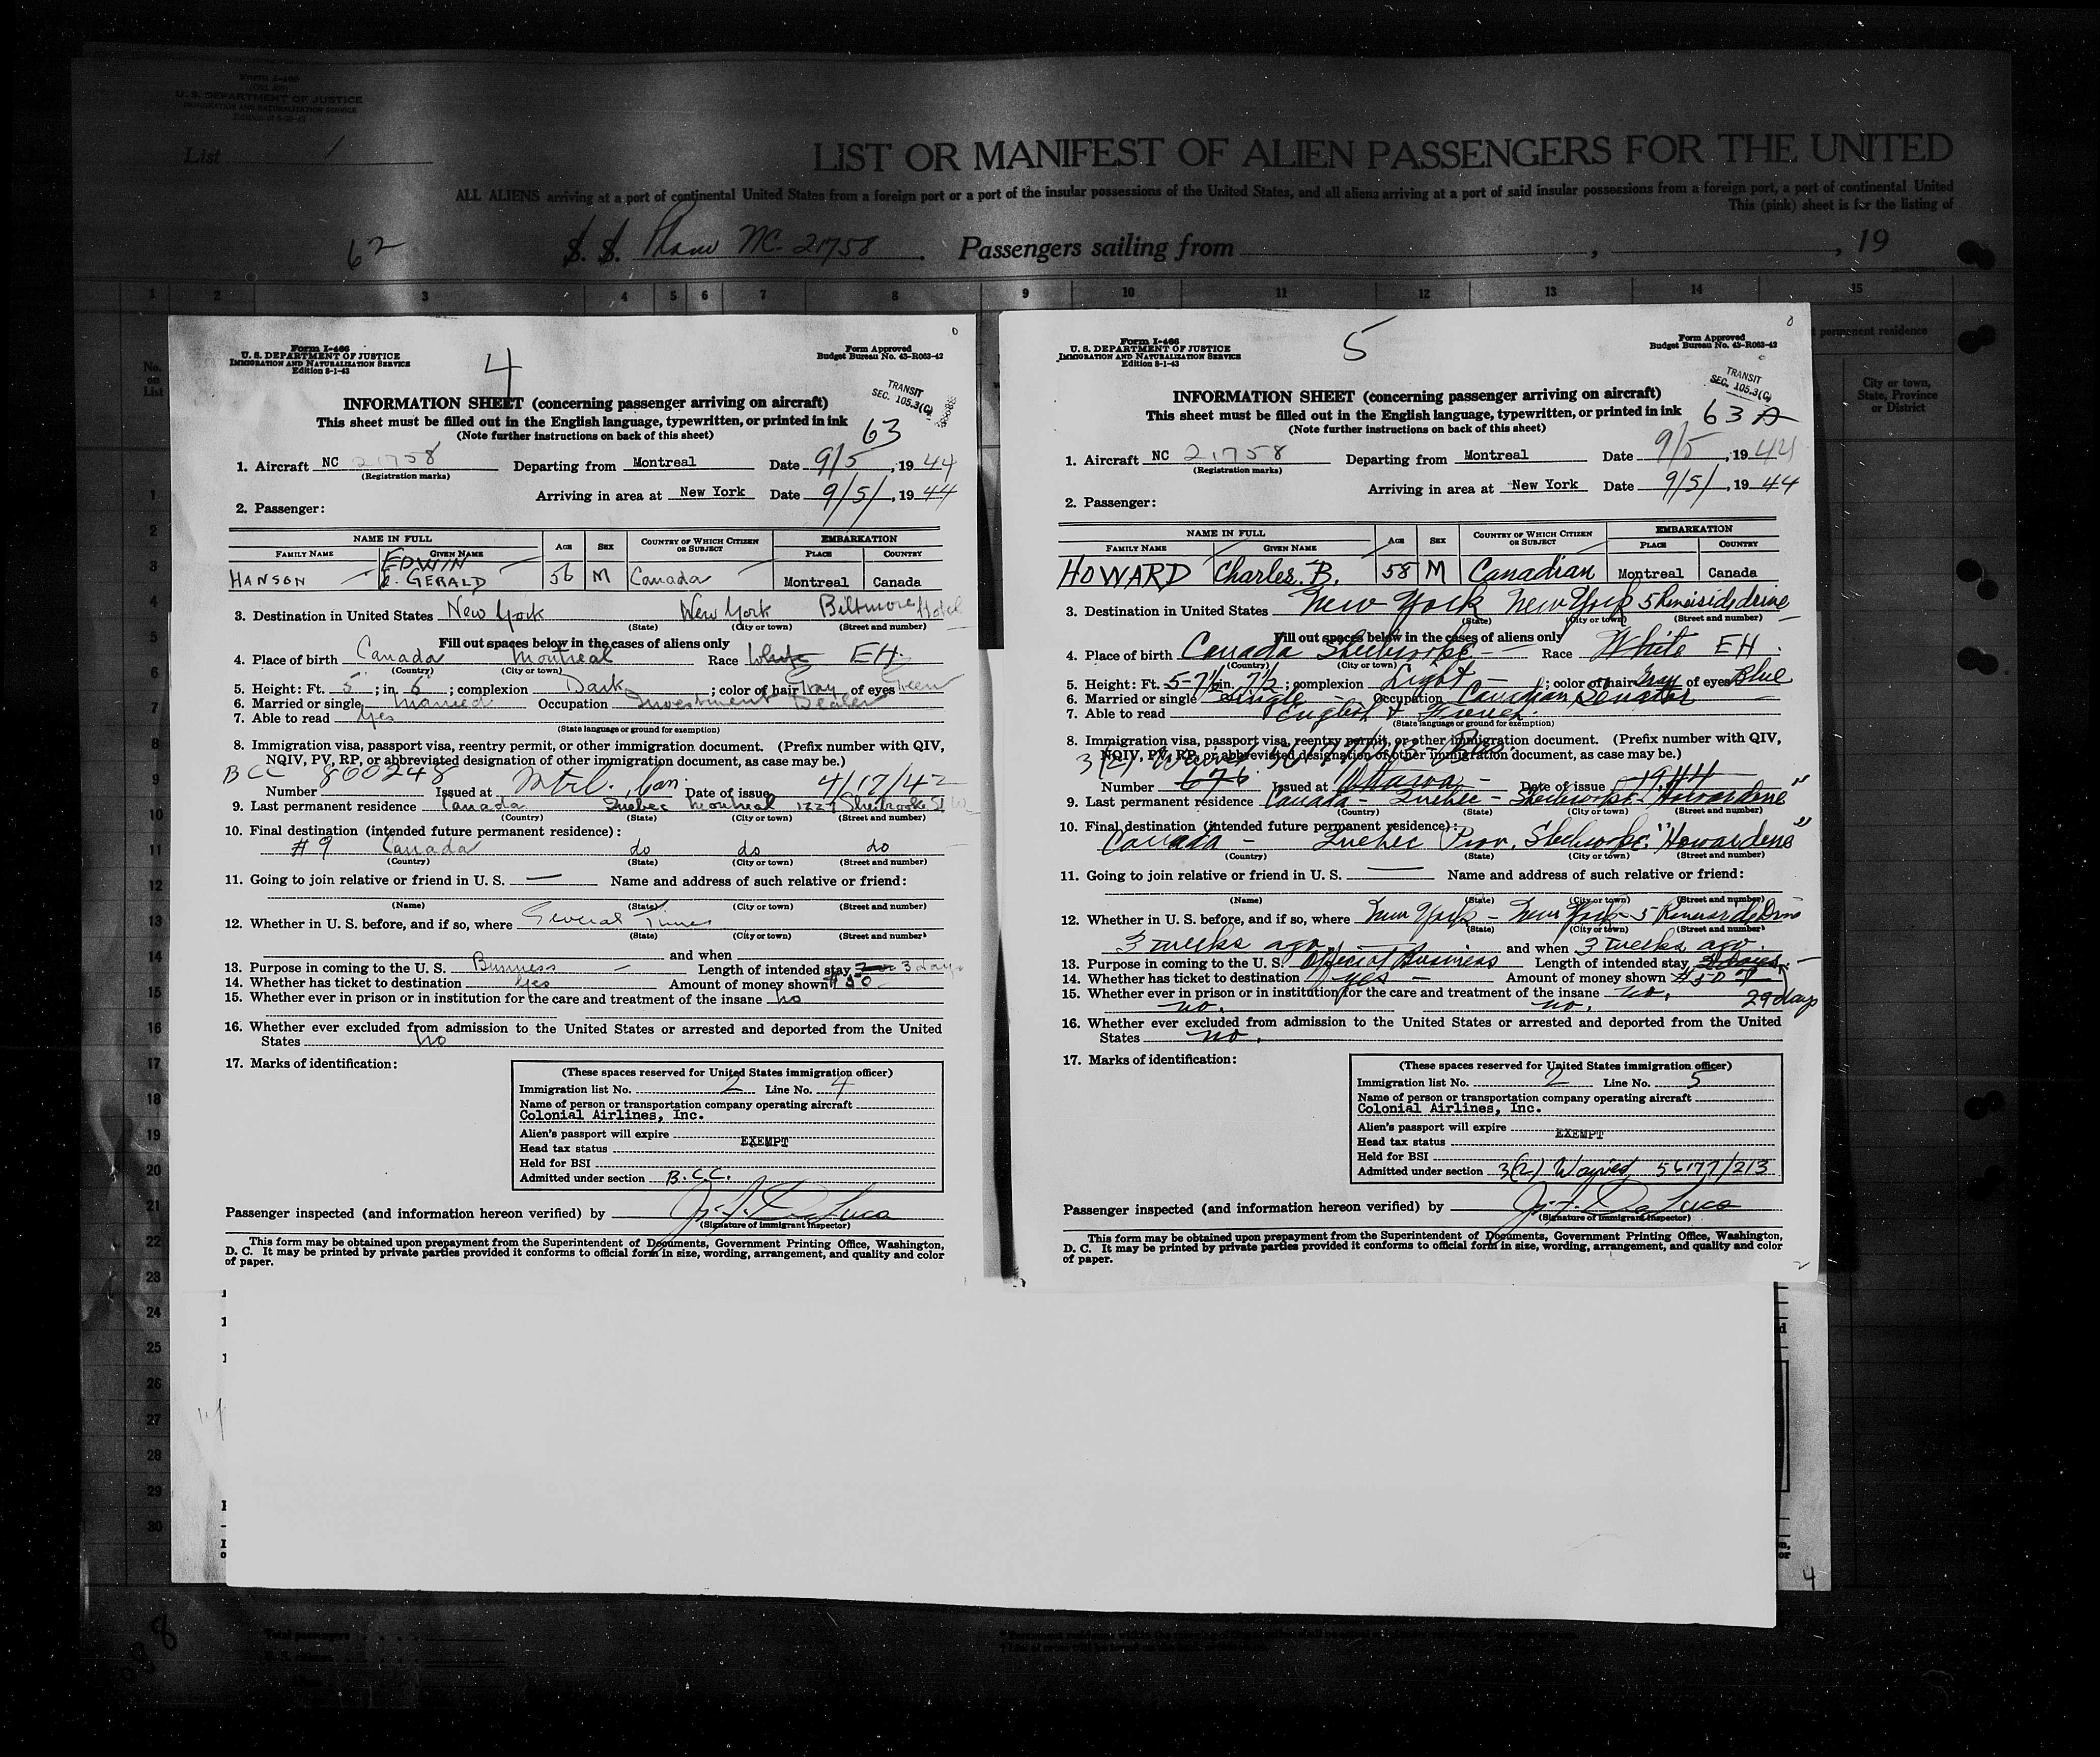 Form I-466
U. S. DEPARTMENT OF JUSTICE
IMMIGRATION AND NATURALIZATION SERVICE
List 1
LIST OR MANIFEST OF ALIEN PASSENGERS FOR THE UNITED
ALL ALIENS arriving at a port of continental United States from a foreign port or a port of the insular possessions of the United States, and all aliens arriving at a port of said insular possessions from a foreign port, a port of continental United
This (pink) sheet is for the listing of
62 S. S. Plane NC-21758 . Passengers sailing from , , 19
1 2 3 4 5 6 7 8 9 10 11 12 13 14 15
No. on List
permanent residence
City or town, State, Province or District
Form I-466
U. S. DEPARTMENT OF JUSTICE
IMMIGRATION AND NATURALIZATION SERVICE
Edition 8-1-43
4
Form Approved
Budget Bureau No. 43-R063-42
TRANSIT
SEC. 105.3(C)
INFORMATION SHEET (concerning passenger arriving on aircraft)
This sheet must be filled out in the English language, typewritten, or printed in ink
(Note further instructions on back of this sheet)
63
1. Aircraft NC 21758 Departing from Montreal Date 9/5, 1944
(Registration marks)
Arriving in area at New York Date 9/5/, 1944
2. Passenger:
NAME IN FULL AGE SEX COUNTRY OF WHICH CITIZEN OR SUBJECT EMBARKATION
FAMILY NAME GIVEN NAME PLACE COUNTRY
HANSON EDWIN GERALD 56 M Canada Montreal Canada
3. Destination in United States New York New York Biltmore Hotel
(State) (City or town) (Street and number)
Fill out spaces below in the cases of aliens only
4. Place of birth Canada Montreal Race White EH.
(Country) (City or town)
5. Height: Ft. 5; in 6; complexion Dark; color of hair Gray of eyes Green
6. Married or single Married Occupation Investment Dealer
7. Able to read Yes
(State language or ground for exemption)
8. Immigration visa, passport visa, reentry permit, or other immigration document. (Prefix number with QIV,
NQIV, PV, RP, or abbreviated designation of other immigration document, as case may be.)
BCC 800248 Mtrl. Can. 4/17/42
Number Issued at Date of issue
9. Last permanent residence Canada Quebec Montreal 1227 Sherbrooke St W
(Country) (State) (City or town) (Street and number)
10. Final destination (intended future permanent residence):
#9 Canada do do do
(Country) (State) (City or town) (Street and number)
11. Going to join relative or friend in U. S. — Name and address of such relative or friend:
(Name) (State) (City or town) (Street and number)
12. Whether in U. S. before, and if so, where Several Times
(State) (City or town) (Street and number)
and when
13. Purpose in coming to the U. S. Business Length of intended stay 3 days
14. Whether has ticket to destination Yes Amount of money shown $50
15. Whether ever in prison or in institution for the care and treatment of the insane no
16. Whether ever excluded from admission to the United States or arrested and deported from the United
States no
17. Marks of identification:
(These spaces reserved for United States immigration officer)
Immigration list No. 2 Line No. 4
Name of person or transportation company operating aircraft
Colonial Airlines, Inc.
Alien's passport will expire
EXEMPT
Head tax status
Held for BSI
Admitted under section B.C.C.
Passenger inspected (and information hereon verified) by J. F. DeLuca
(Signature of Immigrant Inspector)
This form may be obtained upon prepayment from the Superintendent of Documents, Government Printing Office, Washington,
D. C. It may be printed by private parties provided it conforms to official form in size, wording, arrangement, and quality and color
of paper.
Form I-466
U. S. DEPARTMENT OF JUSTICE
IMMIGRATION AND NATURALIZATION SERVICE
Edition 8-1-43
5
Form Approved
Budget Bureau No. 43-R063-42
TRANSIT
SEC. 105.3(C)
INFORMATION SHEET (concerning passenger arriving on aircraft)
This sheet must be filled out in the English language, typewritten, or printed in ink
(Note further instructions on back of this sheet)
63 A
1. Aircraft NC 21758 Departing from Montreal Date 9/5, 1944
(Registration marks)
Arriving in area at New York Date 9/5/, 1944
2. Passenger:
NAME IN FULL AGE SEX COUNTRY OF WHICH CITIZEN OR SUBJECT EMBARKATION
FAMILY NAME GIVEN NAME PLACE COUNTRY
HOWARD Charles. B. 58 M Canadian Montreal Canada
3. Destination in United States New York New York 5 Riverside drive
(State) (City or town) (Street and number)
Fill out spaces below in the cases of aliens only
4. Place of birth Canada Sherbrooke Race White EH.
(Country) (City or town)
5. Height: Ft. 5-7½ in. 7½; complexion Light; color of hair Gray of eyes Blue
6. Married or single Single Occupation Canadian Senator
7. Able to read English & French.
(State language or ground for exemption)
8. Immigration visa, passport visa, reentry permit, or other immigration document. (Prefix number with QIV,
NQIV, PV, RP, or abbreviated designation of other immigration document, as case may be.)
3(2) Waived 56177/213
Number 676 Issued at Ottawa Date of issue 1944
9. Last permanent residence Canada - Quebec - Sherbrooke "Howardene"
(Country) (State) (City or town) (Street and number)
10. Final destination (intended future permanent residence):
Canada - Quebec Prov. Sherbrooke "Howardene"
(Country) (State) (City or town) (Street and number)
11. Going to join relative or friend in U. S. — Name and address of such relative or friend:
(Name) (State) (City or town) (Street and number)
12. Whether in U. S. before, and if so, where New York - New York - 5 Riverside Drive
(State) (City or town) (Street and number)
3 weeks ago. and when 3 weeks ago.
13. Purpose in coming to the U. S. Official Business Length of intended stay
14. Whether has ticket to destination yes Amount of money shown
15. Whether ever in prison or in institution for the care and treatment of the insane no. 29 days
no. no.
16. Whether ever excluded from admission to the United States or arrested and deported from the United
States no.
17. Marks of identification:
(These spaces reserved for United States immigration officer)
Immigration list No. 2 Line No. 5
Name of person or transportation company operating aircraft
Colonial Airlines, Inc.
Alien's passport will expire
EXEMPT
Head tax status
Held for BSI
Admitted under section 3(2) Waived 56177/213
Passenger inspected (and information hereon verified) by J. F. DeLuca
(Signature of Immigrant Inspector)
This form may be obtained upon prepayment from the Superintendent of Documents, Government Printing Office, Washington,
D. C. It may be printed by private parties provided it conforms to official form in size, wording, arrangement, and quality and color
of paper.
2
1
2
3
4
5
6
7
8
9
10
11
12
13
14
15
16
17
18
19
20
21
22
23
24
25
26
27
28
29
30
4
Total passengers